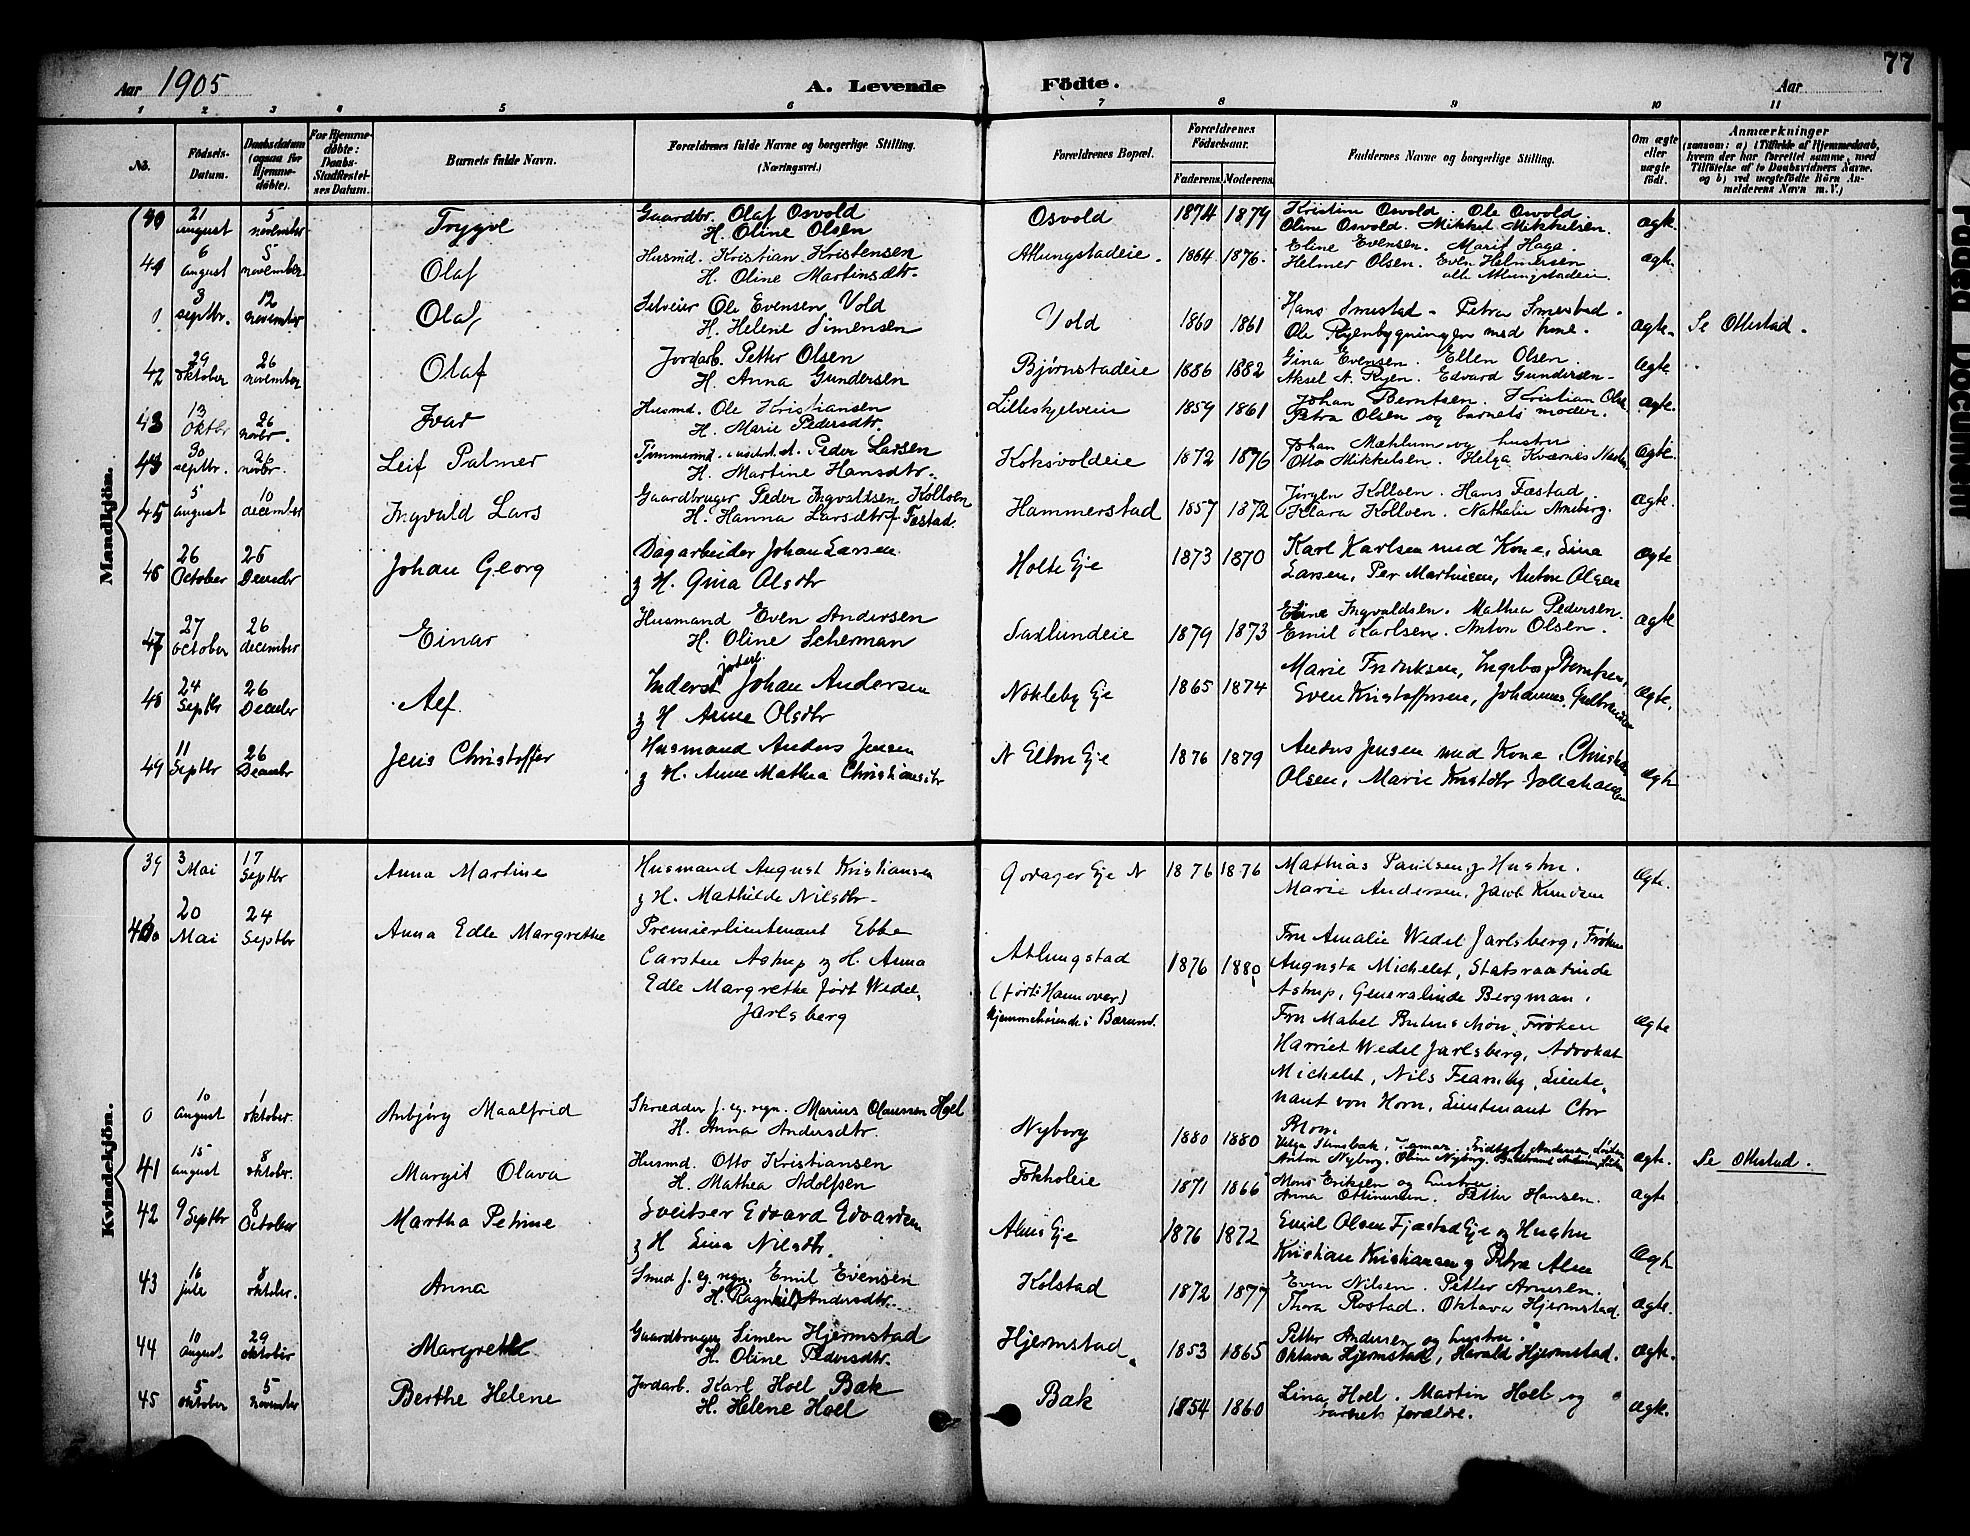 77
Aar 1905
A. Levende Fødte.
Aar
1 2 3 4 5 6 7 8 9 10 11
No.
Fødsels-Datum.
Daabsdatum (ogsaa for Hjemmedøbte).
For Hjemmedøbte: Daabs-Stadfæstelses Datum.
Barnets fulde Navn.
Forældrenes fulde Navne og borgerlige Stilling. (Næringsvei.)
Forældrenes Bopæl.
Forældrenes Fødselsaar.
Faderens. Moderens.
Faddernes Navne og borgerlige Stilling.
Om ægte eller uægte født.
Anmærkninger
(saasom: a) i Tilfælde af Hjemmedaab, hvem der har forrettet samme, med Tilføielse af to Daabsvidners Navne. og b) ved uægtefødte Børn Anmelderens Navn m. V.)
Mandkjøn.
40 21 august 5 november Trygve Gaardbr. Olaf Osvold H. Oline Olsen Osvold 1874 1879 Kristine Osvold Ole Osvold Oline Osvold. Mikkel Mikkelsen. ægte.
41 6 august 5 november Olaf Husmd. Kristian Kristensen H. Oline Martinsdtr. Atlungstadeie. 1864 1876. Eline Evensen. Marit Hage. Helmer Olsen. Even Helmersen alle Atlungstadeie. ægte.
0 3 septbr. 12 november Olaf Selveier Ole Evensen Vold H. Helene Simensen Vold 1860 1861 Hans Smestad. Petra Smestad. Ole Ryenbygningen med kone. ægte. Se Ottestad.
42 29 oktober 26 november Olaf Jordarb. Petter Olsen H. Anna Gundersen Bjørnstadeie 1886 1882 Gina Evensen. Ellen Olsen. Aksel A. Ryen. Edvard Gundersen. ægte
43 13 oktbr 26 novbr. Ivar Husmd. Ole Kristiansen H. Marie Pedersdtr. Lilleskjelveie 1859 1861 Johan Berntsen. Kristian Olsen. Petra Olsen og barnets moder. ægte.
30 septbr. 26 novbr. Leif Palmer Peder Larsen H. Martine Hansdtr. Koksvoldeie 1872 1876 Johan Mæhlum og hustru Otto Mikkelsen. Helga Kværnes ægte.
45 5 august 10 december Ingvald Lars Gaardbruger Peder Ingvaldsen Kolloen H. Hanna Larsdtr f Fæstad. Hammerstad 1857 1872 Jørgen Kolloen. Hans Fæstad. Klara Kolloen. Nathalie Arneberg. ægte.
46 26 October 25 Decembr Johan Georg Dagarbeider Johan Larsen g H. Gina Olsdtr Holte Eje 1873 1870 Karl Karlsen med Kone, Lina Larsen, Per Martinsen, Anton Olsen ægte
47 27 october 26 december Einar Husmand Even Andersen H. Oline Scherman Saxlundeie 1879 1873 Eline Ingvaldsen. Mathea Pedersen. Emil Karlsen. Anton Olsen. ægte
48 24 Septbr 26 Decembr Alf. Inderst Johan Andersen g H Anne Olsdtr Nokleby Eje 1865 1874 Marie Fredriksen, Ingeborg Berntsen, Even Kristoffersen, Johannes Gulbrandsen ægte.
49 11 Septbr 26 Decembr Jens Christoffer Husmand Anders Jensen g H. Anne Mathea Christiansdtr N Elton Eje 1876 1879 Anders Jensen med Kone, Christian Olsen, Marie ægte
Kvindekjøn.
39 3 Mai 17 Septbr Anna Martine Husmand August Kristiansen g H. Mathilde Nilsdtr. Gorager Eje N 1876 1876 Mathias Paulsen g Hustru. Marie Andersen, Jacob Knudsen ægte.
40 20 Mai 24 Septbr Anna Edle Margrethe Premierlieutenant Ebbe
Carsten Astrup g H. Anna
Edle Margrethe født Wedel-
Jarlsberg
Atlungstad
(født i Hannover)
hjemmehørende i Bærum.
1876 1880
Fru Amalie Wedel Jarlsberg, Frøken
Augusta Michelet, Statsraadinde
Astrup, Generalinde Bergman,
Fru Mabel, Frøken
Harriet Wedel Jarlsberg, Advokat
Michelet, Nils, Lieute-
nant von Horn, Lieutenant Chr
ægte
0 10 august 1 oktober. Anbjørg Maalfrid Skrædder f. eg. regn. Marius Olaussen Hoel H. Anna Andersdtr. Nyborg 1880 1880 Anton Nyborg. Oline Nyborg. ægte. Se Ottestad.
41 15 august 8 oktober. Margit Olava Husmd. Otto Kristiansen H. Mathea Adolfsen Fokholeie 1871 1866 Mons Eriksen og hustru Anna Ottinusen. Petter Hansen. ægte
42 9 Septbr 8 October Martha Petrine Sveitser Edvard Edvardsen g H Lina Nilsdtr. Alms Eje 1876 1872 Emil Olsen Fjæstad Eje og Hustru Kristian Kristiansen g Petra Alm ægte
43 16 juli 8 oktober. Anna Smed f. eg. regn. Emil Evensen H. Ragnhild Andersdtr. Kolstad 1872 1877 Even Nilsen. Petter Arnesen. Thora Rostad. Oktava Hjermstad. ægte.
44 10 august. 29 oktober Margrethe Gaardbruger Simen Hjermstad H. Oline Pedersdtr. Hjermstad. 1853 1865 Petter Andersen og hustru. Oktava Hjermstad, Harald Hjermstad. ægte.
45 5 oktober 5 november Berthe Helene Jordarb. Karl Hoel Bæk H. Helene Hoel Bæk 1854 1860 Lina Hoel. Martin Hoel og barnets forældre. ægte.
Faded Document